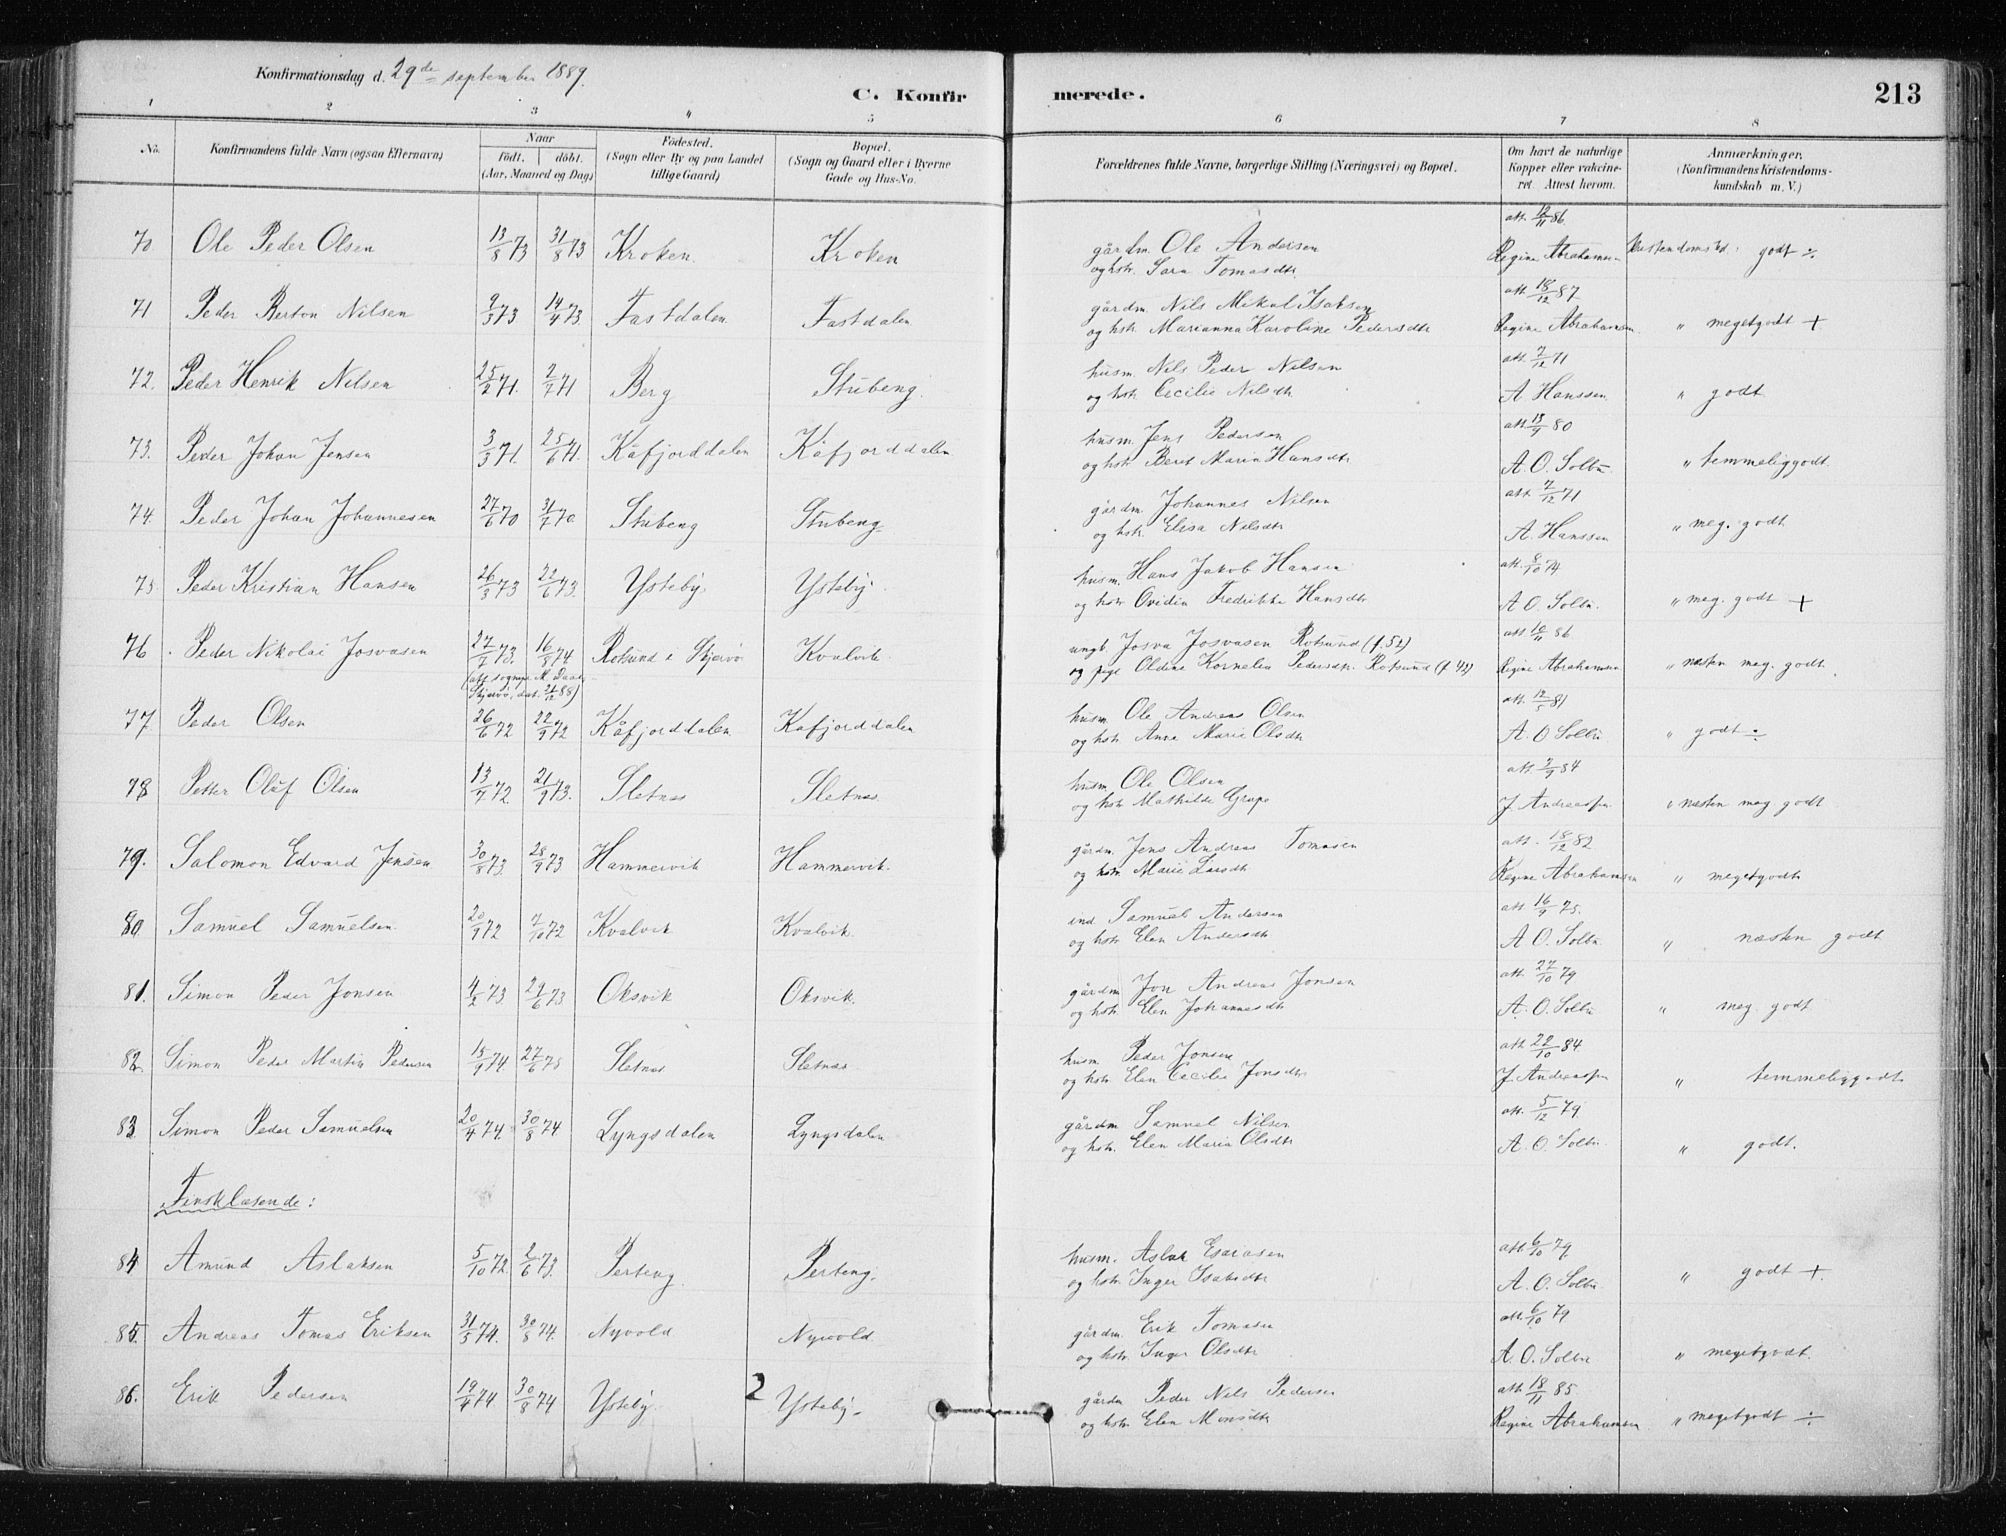 Konfirmationsdag d. 29de september 1889.
C. Konfirmerede.
213
1 2 3 4 5 6 7 8
No. Konfirmandens fulde Navn (ogsaa Efternavn) Naar født. døbt. (Aar, Maaned og Dag) Fødested. (Sogn eller By og paa Landet tillige Gaard) Bopæl. (Sogn og Gaard eller i Byerne Gade og Hus-No. Forældrenes fulde Navne, borgerlige Stilling (Næringsvei) og Bopæl. Om havt de naturlige Kopper eller vakcineret. Attest herom. Anmærkninger. (Konfirmandens Kristendomskundskab m. V.)
70 Ole Peder Olsen 13/8 73 31/8 73 Kroken Kroken gårdm. Ole Andersen att. 12/11 86
og hstr. Sara Tomasdtr. Regine Abrahamsen kristendomskd: godt ÷
71 Peder Berton Nilsen 9/3 73 14/4 73 Fastdalen Fastdalen gårdm. Nils Mikal Isaksen att. 18/12 87
og hstr. Marianna Karoline Pedersdtr Regine Abrahamsen " megetgodt +
72. Peder Henrik Nilsen 25/2 71. 2/7 71 Berg Stubeng husm. Nils Peder Nilsen att. 7/12 71
og hstr. Cecilie Nilsdtr. A. Hanssen " godt
73. Peder Johan Jensen 3/3 71. 25/6 71. Kåfjorddalen Kåfjorddalen husm. Jens Pedersen att. 13/9 80
og hstr. Beret Maria Hansdtr. A. O. Solbu " temmeliggodt.
74. Peder Johan Johannesen 27/6 70 31/7 70 Stubeng Stubeng gårdm. Johannes Nilsen att. 7/12 71
og hstr. Elisa Nilsdtr. A. Hanssen " meg. godt
75 Peder Kristian Hansen 26/3 73 22/6 73. Ysteby. Ysteby. husm. Hans Jakob Hansen att. 6/10 74
og hstr. Ovidia Fredrikke Hansdtr A. O. Solbu. " meg. godt +
76 Peder Nikolai Josvasen 27/7 73. 16/8 74 Rotsund i Skjervø Kvalvik ungk. Josva Josvasen Rotsund (f. 52) att. 10/11 86
(att. sognepr. M. Daae, Skjervø, dat. 21/12 88) og pige Oldine Kornelia Pedersdtr. Rotsund (f 42) Regine Abrahamsen " næsten meg. godt.
77 Peder Olsen 26/6 72 22/9 72 Kåfjorddalen Kåfjorddalen husm. Ole Andreas Olsen att. 12/5 81
og hstr. Anne Marie Olsdtr A. O Solbu " godt ÷
78 Petter Oluf Olsen 13/7 72 21/9 73. Sletnes Sletnes. husm. Ole Olsen att. 7/9 84
og hstr. Mathilde Grape J. Andreassen " næsten meg godt
79. Salomon Edvard Jensen 30/8 73 28/9 73 Hammervik Hammervik. gårdm. Jens Andreas Tomasen att. 18/12 82
og hstr Marie Larsdtr Regine Abrahamsen " megetgodt
80 Samuel Samuelsen 20/9 72 7/10 72 Kvalvik Kvalvik. ind Samuel Andersen att. 16/9 75.
og hstr. Elen Andersdtr A. O. Solbu " næsten godt
81. Simon Peder Jonsen 4/2 73 29/6 73 Oksvik Oksvik. gårdm. Jon Andreas Jonsen att. 27/10 79
og hstr. Elen Johannesdtr A. O. Solbu " meg. godt
82. Simon Peder Martin Pedersen 15/9 74 27/6 75 Sletnes Sletnes. husm. Peder Jonsen att. 22/10 84.
og hstr. Elen Cecilie Jonsdtr J. Andreassen " temmeliggodt
83 Simon Peder Samuelsen 20/4 74. 30/8 74 Lyngsdalen Lyngsdalen gårdm. Samuel Nilsen att. 5/12 79.
og hstr. Elen Maria Olsdtr A. O. Solbu. " godt.
Finsklæsende:
84 Amund Aslaksen 5/10 72. 2/6 73. Perteng Perteng. husm. Aslak Esaiasen att. 6/10 79.
og hstr. Inger Isaksdtr A. O. Solbu " godt +.
85. Andreas Tomas Eriksen 31/5 74. 30/8 74. Nyvold Nyvold. gårdm. Erik Tomasen att. 6/10 79
og hstr. Inger Olsdtr. A. O. Solbu " megetgodt.
86. Erik Pedersen 19/4 74 30/8 74 Ysteby. 2 Ysteby. gårdm Peder Nils Pedersen att. 18/11 85.
og hstr. Elen Monsdtr Regine Abrahamsen " megetgodt ÷